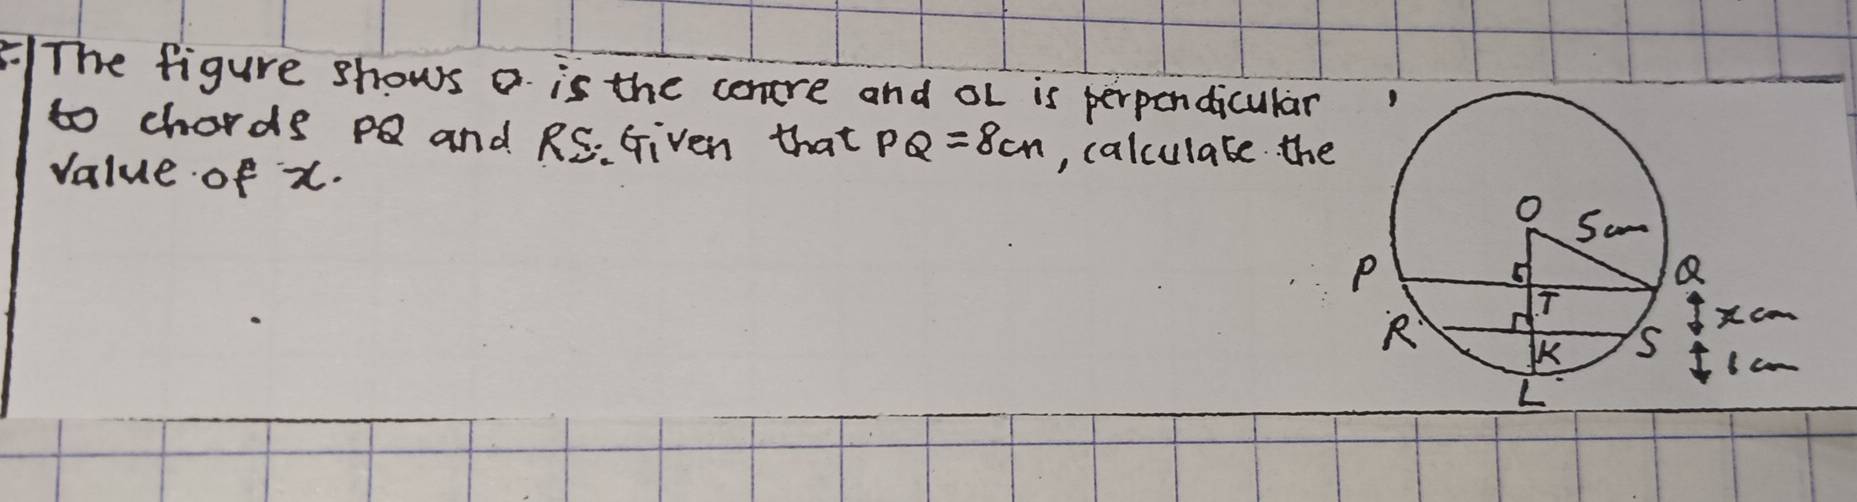 The figure shows O is the centre and OL is perpendicular
to chords PQ and RS. Given that PQ = 8cm, calculate the
value of x.
O
5cm
P
Q
T
x cm
R
S
K
1 cm
L